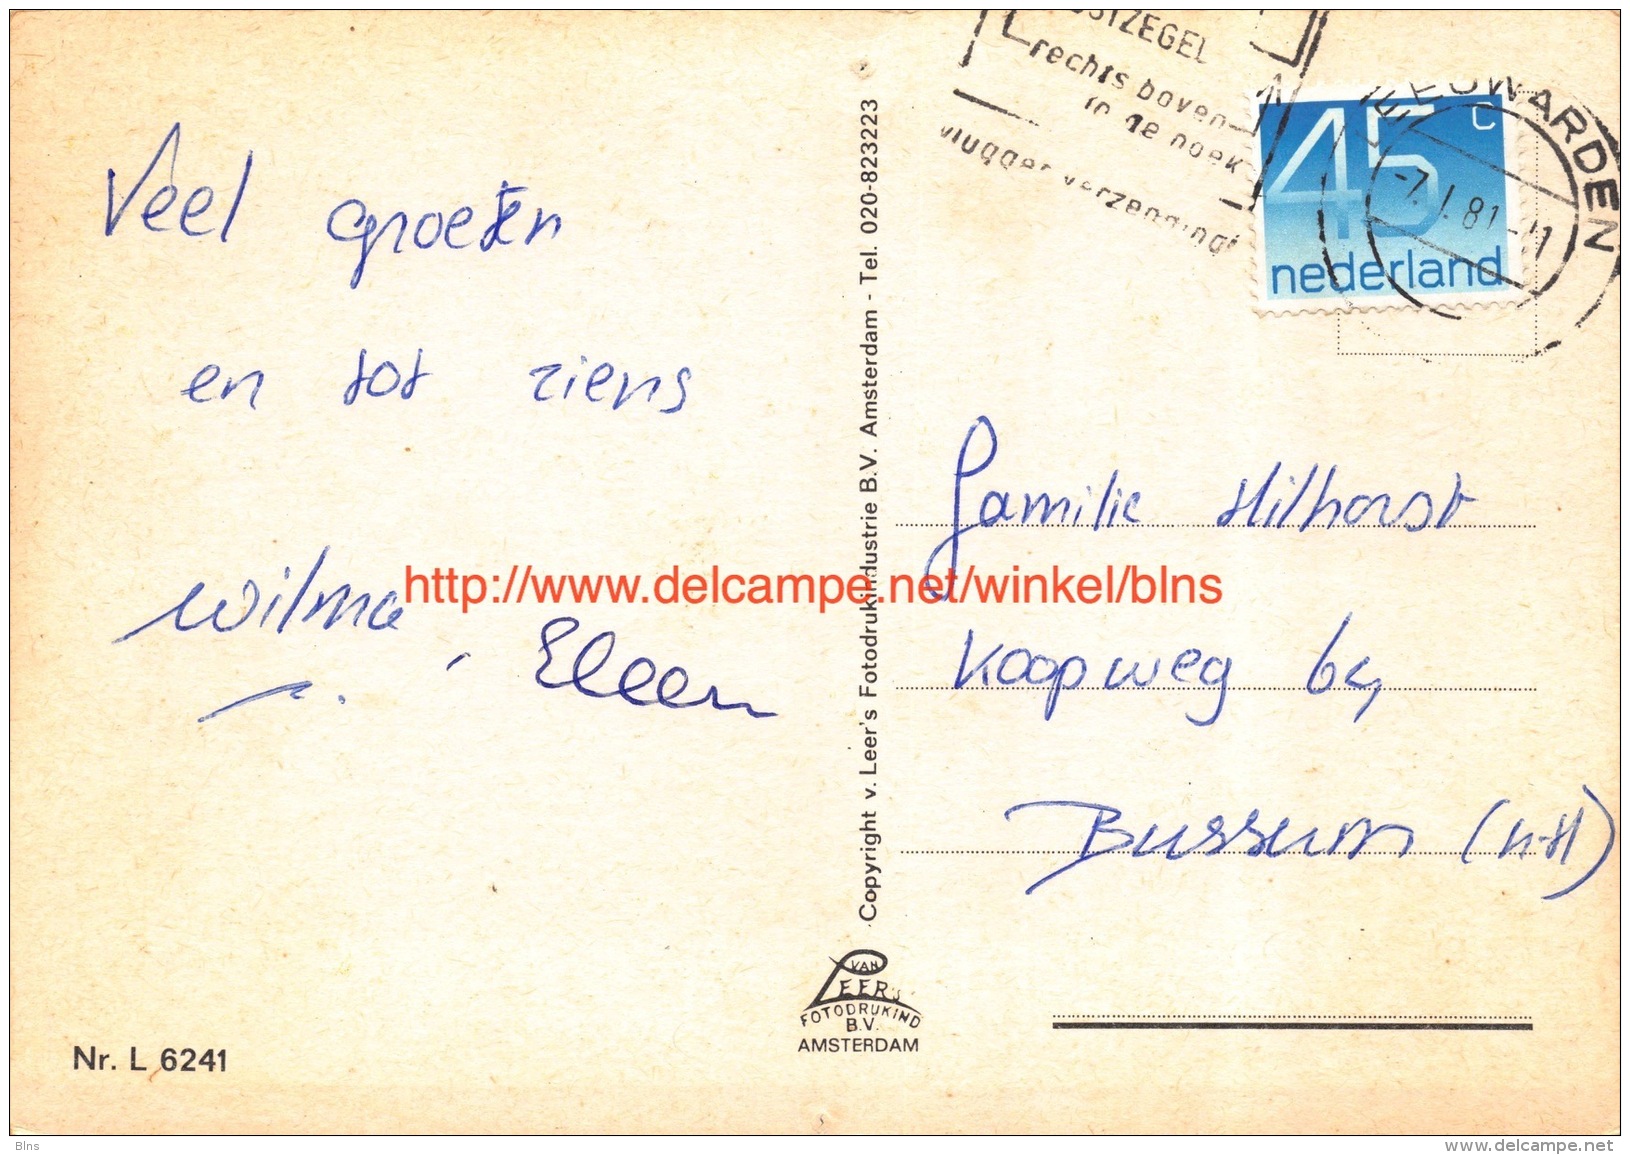 POSTZEGEL
rechts boven
in de hoek
vlugger verzending!
LEEUWARDEN
-7.I.81-11
45 c
nederland
Veel groeten
en tot ziens
Wilma
Elleen
http://www.delcampe.net/winkel/blns
Familie Hilhorst
Koopweg
Bussum (N-H)
Copyright v. Leer's Fotodrukindustrie B.V. Amsterdam - Tel. 020-823223
VAN
LEER'S
FOTODRUKIND
B.V.
AMSTERDAM
Nr. L 6241
Blns
www.delcampe.net